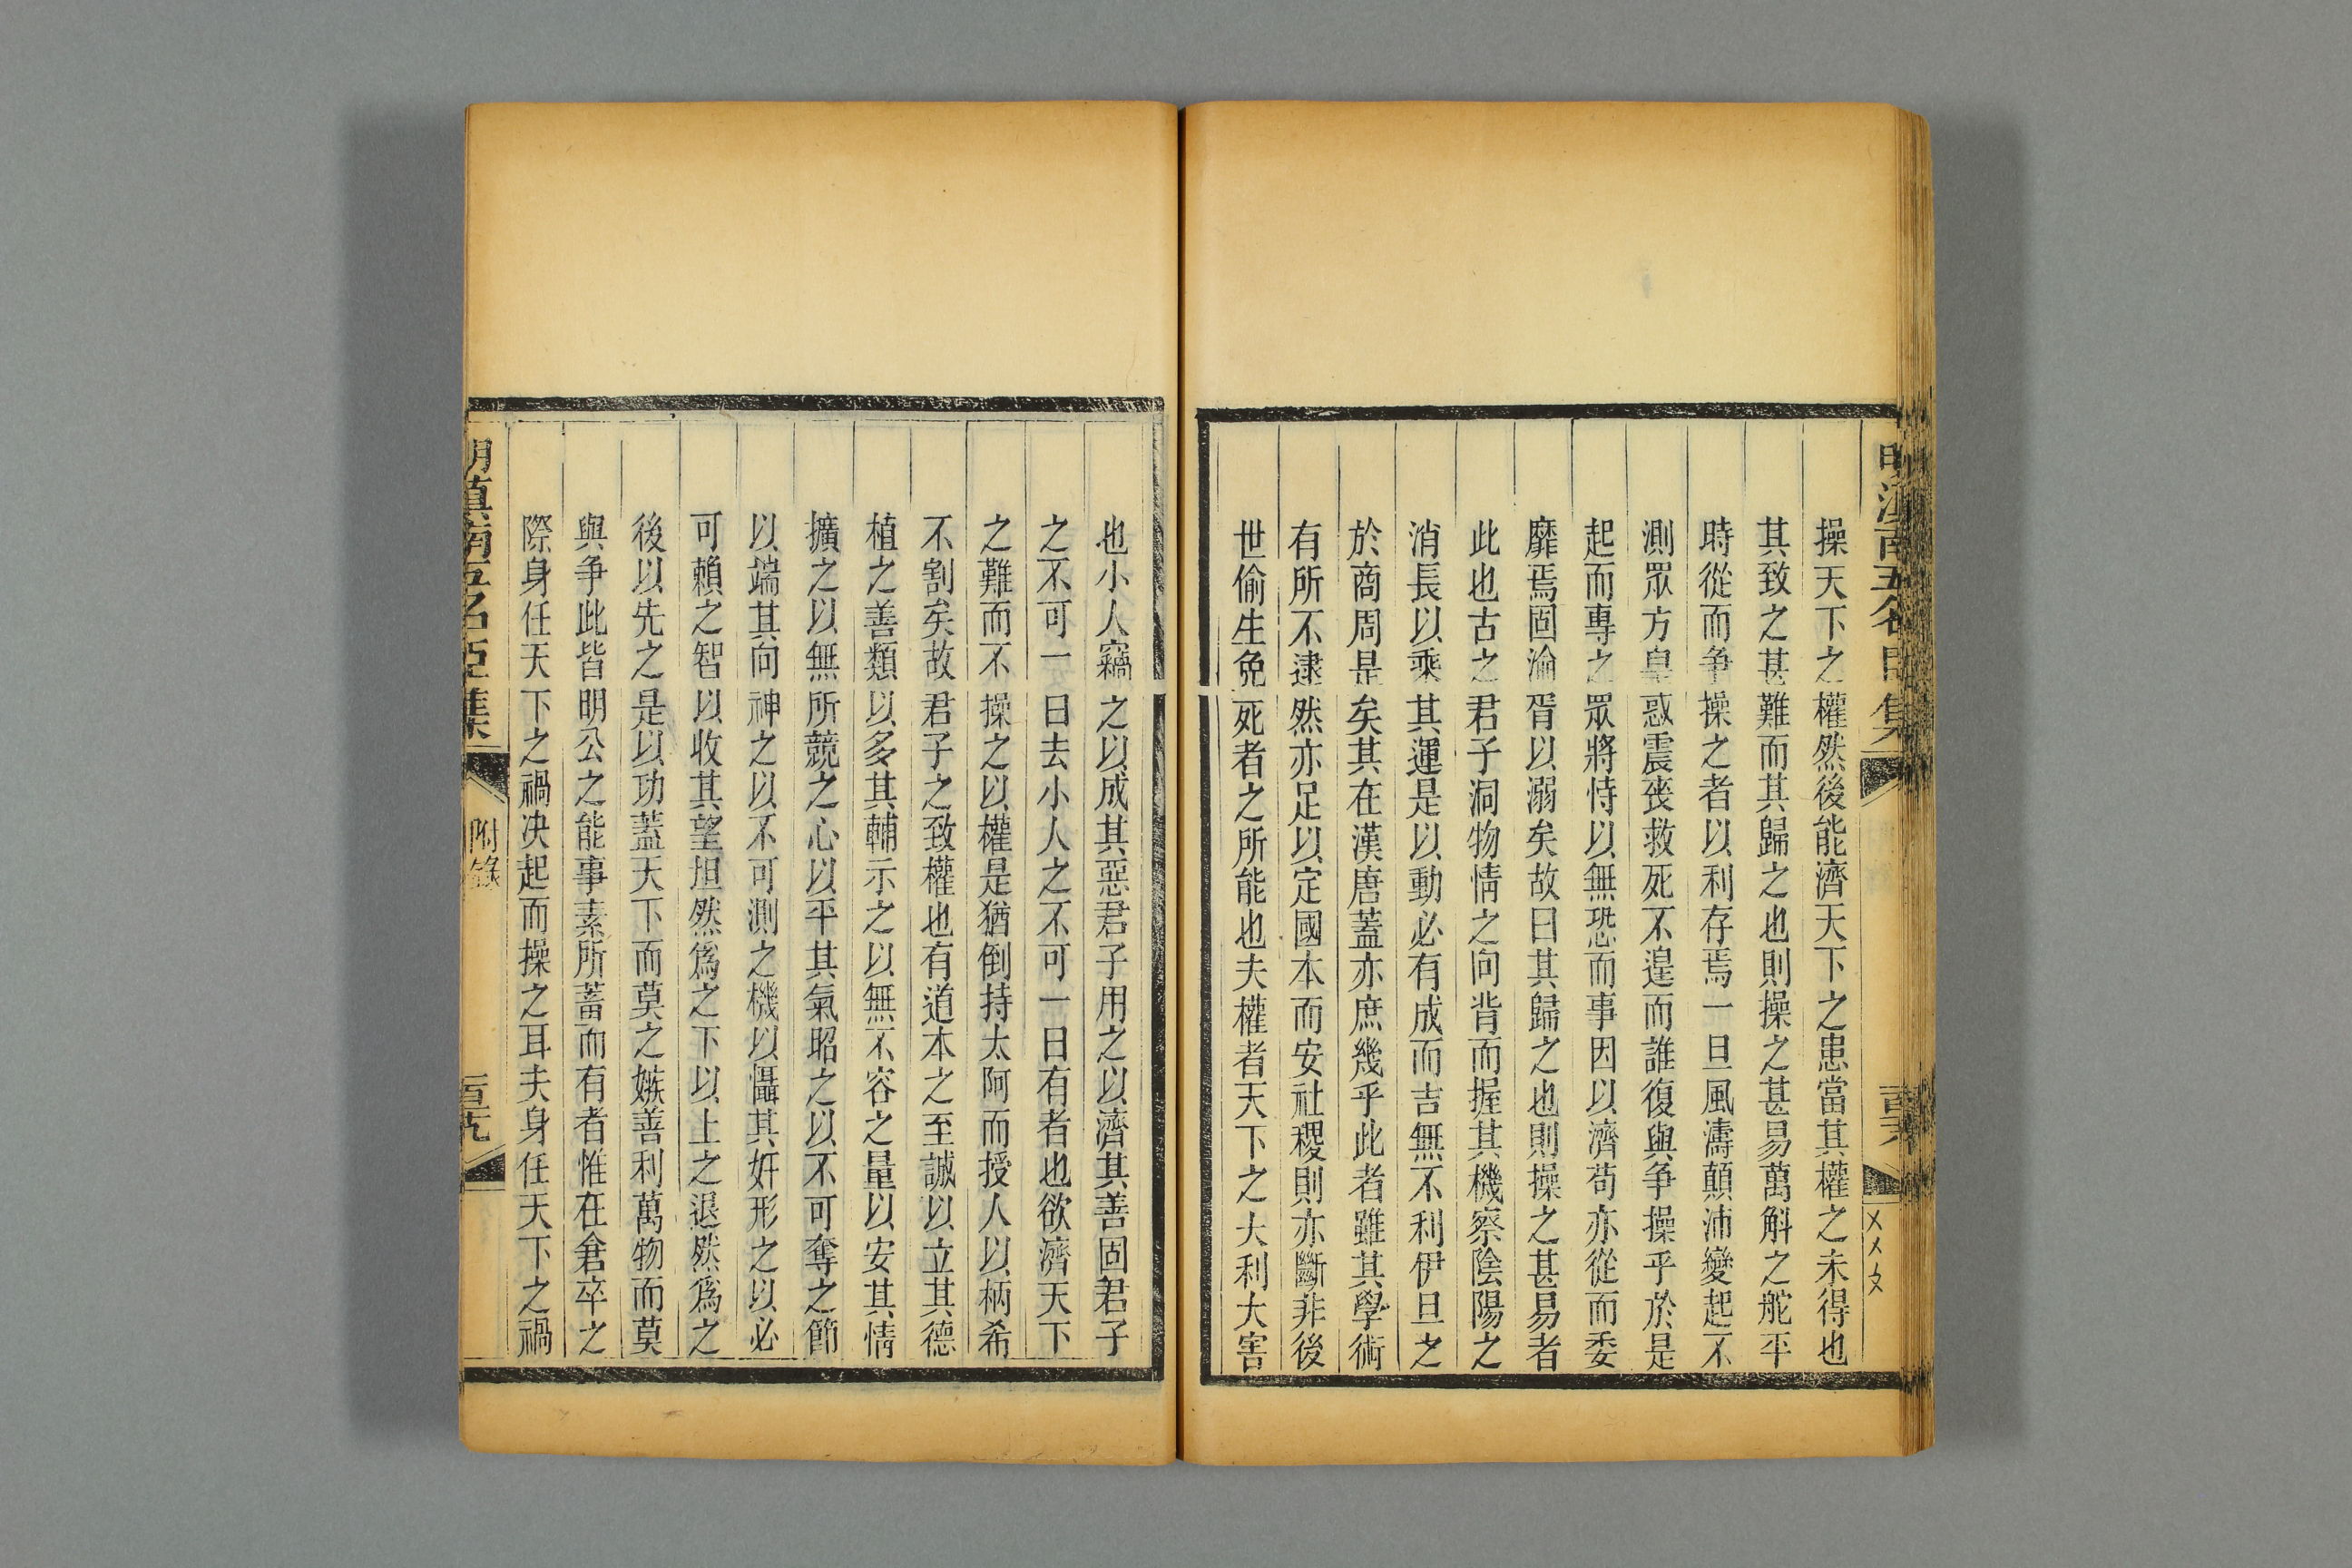 操天下之權然後能濟天下之患當其權之未得也
其致之甚難而其歸之也則操之甚易萬斛之舵平
時從而争操之者以利存焉一旦風濤顛沛變起不
測眾方皇惑震喪救死不遑而誰復與争操乎於是
起而專之眾將恃以無恐而事因以濟苟亦從而委
靡焉固淪胥以溺矣故曰其歸之也則操之甚易者
此也古之君子洞物情之向背而握其機察陰陽之
消長以乘其運是以動必有成而吉無不利伊旦之
於商周是矣其在漢唐蓋亦庶幾乎此者雖其學術
有所不逮然亦足以定國本而安社稷則亦斷非後
世偷生免死者之所能也夫權者天下之大利大害
也小人竊之以成其惡君子用之以濟其善固君子
之不可一日去小人之不可一日有者也欲濟天下
之難而不操之以權是猶倒持太阿而授人以柄希
不割矣故君子之致權也有道本之至誠以立其德
植之善類以多其輔示之以無不容之量以安其情
擴之以無所競之心以平其氣昭之以不可奪之節
以端其向神之以不可測之機以懾其奸形之以必
可賴之智以收其望坦然為之下以上之退然為之
後以先之是以功蓋天下而莫之嫉善利萬物而莫
與争此皆明公之能事素所蓄而有者惟在倉卒之
際身任天下之禍决起而操之耳夫身任天下之禍
明滇南五名臣集
附錄